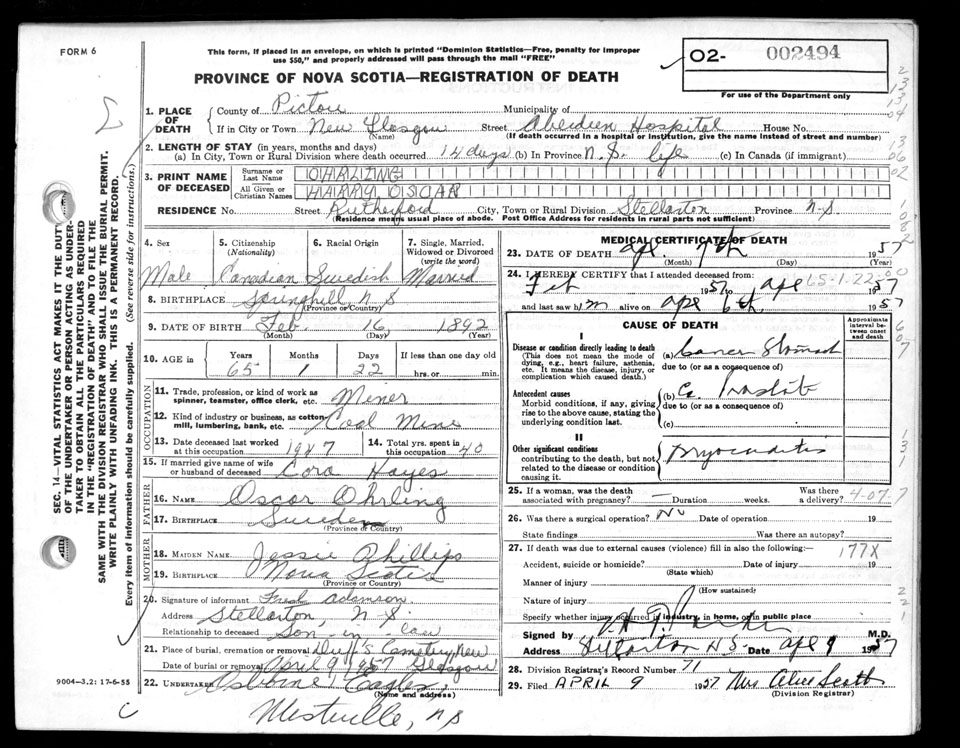 FORM 6
This form, if placed in an envelope, on which is printed "Dominion Statistics—Free, penalty for improper
use $50," and properly addressed will pass through the mail "FREE"
PROVINCE OF NOVA SCOTIA—REGISTRATION OF DEATH
O2- 002494
For use of the Department only
SEC. 14—VITAL STATISTICS ACT MAKES IT THE DUTY
OF THE UNDERTAKER OR PERSON ACTING AS UNDER-
TAKER TO OBTAIN ALL THE PARTICULARS REQUIRED
IN THE "REGISTRATION OF DEATH" AND TO FILE THE
SAME WITH THE DIVISION REGISTRAR WHO SHALL ISSUE THE BURIAL PERMIT.
WRITE PLAINLY WITH UNFADING INK. THIS IS A PERMANENT RECORD.
Every item of information should be carefully supplied. (See reverse side for instructions.)
1. PLACE OF DEATH County of Pictou Municipality of
If in City or Town New Glasgow Street Aberdeen Hospital House No.
(Name) (If death occurred in a hospital or institution, give the name instead of street and number)
2. LENGTH OF STAY (in years, months and days)
(a) In City, Town or Rural Division where death occurred 14 days (b) In Province N.S. life (c) In Canada (if immigrant)
3. PRINT NAME OF DECEASED Surname or Last Name OHRLING
All Given or Christian Names HARRY OSCAR
RESIDENCE No. Street Rutherford City, Town or Rural Division Stellarton Province N.S.
(Residence means usual place of abode. Post Office Address for residents in rural parts not sufficient)
4. Sex 5. Citizenship (Nationality) 6. Racial Origin 7. Single, Married, Widowed or Divorced (write the word)
Male Canadian Swedish Married
8. BIRTHPLACE Springhill N S
(Province or Country)
9. DATE OF BIRTH Feb. 16 1892
(Month) (Day) (Year)
10. AGE in Years Months Days If less than one day old
65 1 22 hrs. or min.
OCCUPATION
11. Trade, profession, or kind of work as spinner, teamster, office clerk, etc. Miner
12. Kind of industry or business, as cotton mill, lumbering, bank, etc. Coal Mine
13. Date deceased last worked at this occupation 1947 14. Total yrs. spent in this occupation 40
15. If married give name of wife or husband of deceased Cora Hayes
FATHER
16. NAME Oscar Ohrling
17. BIRTHPLACE Sweden
(Province or Country)
MOTHER
18. MAIDEN NAME Jessie Phillips
19. BIRTHPLACE Nova Scotia
(Province or Country)
20. Signature of informant Fred Adamson
Address Stellarton, N.S.
Relationship to deceased Son-in-law
21. Place of burial, cremation or removal Duff's Cemetery New
Date of burial or removal April 9 1957 Glasgow
22. UNDERTAKER Osborne Eagles
(Name and address)
Westville, N S
9004-3.2: 17-6-55
MEDICAL CERTIFICATE OF DEATH
23. DATE OF DEATH Apr. 7th 1957
(Month) (Day) (Year)
24. I HEREBY CERTIFY that I attended deceased from:
Feb 1957 to Apr 1957
65-1-22-00
and last saw him alive on Apr 6th. 1957
CAUSE OF DEATH
Approximate interval between onset and death
I
Disease or condition directly leading to death (a) Cancer Stomach
(This does not mean the mode of dying, e.g., heart failure, asthenia, etc. It means the disease, injury, or complication which caused death.)
due to (or as a consequence of)
Antecedent causes
Morbid conditions, if any, giving rise to the above cause, stating the underlying condition last.
(b) Ca Prostate
due to (or as a consequence of)
(c)
II
Other significant conditions
contributing to the death, but not related to the disease or condition causing it.
Myocarditis
25. If a woman, was the death associated with pregnancy? — Duration weeks. Was there a delivery?
4-07.7
26. Was there a surgical operation? No Date of operation 19
State findings Was there an autopsy?
27. If death was due to external causes (violence) fill in also the following:— 177X
Accident, suicide or homicide? Date of injury 19
(State which)
Manner of injury
(How sustained)
Nature of injury
Specify whether injury occurred in industry, in home, or in public place
Signed by M.D.
Address Stellarton N.S. Date Apr 9 1957
28. Division Registrar's Record Number 71
29. Filed APRIL 9 1957 Mrs Alice Scott
(Division Registrar)